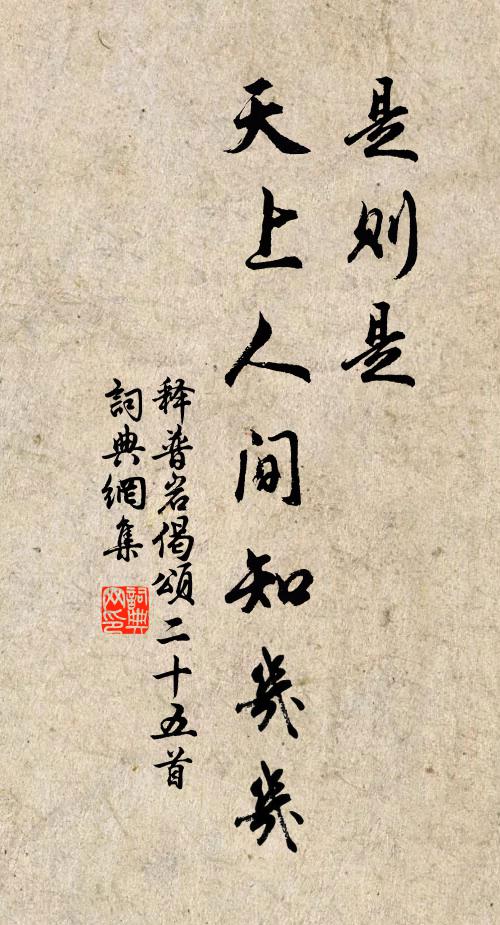 是則是
天上人间知幾幾
释普岩偈頌二十五首
詞典網集
詞典網印